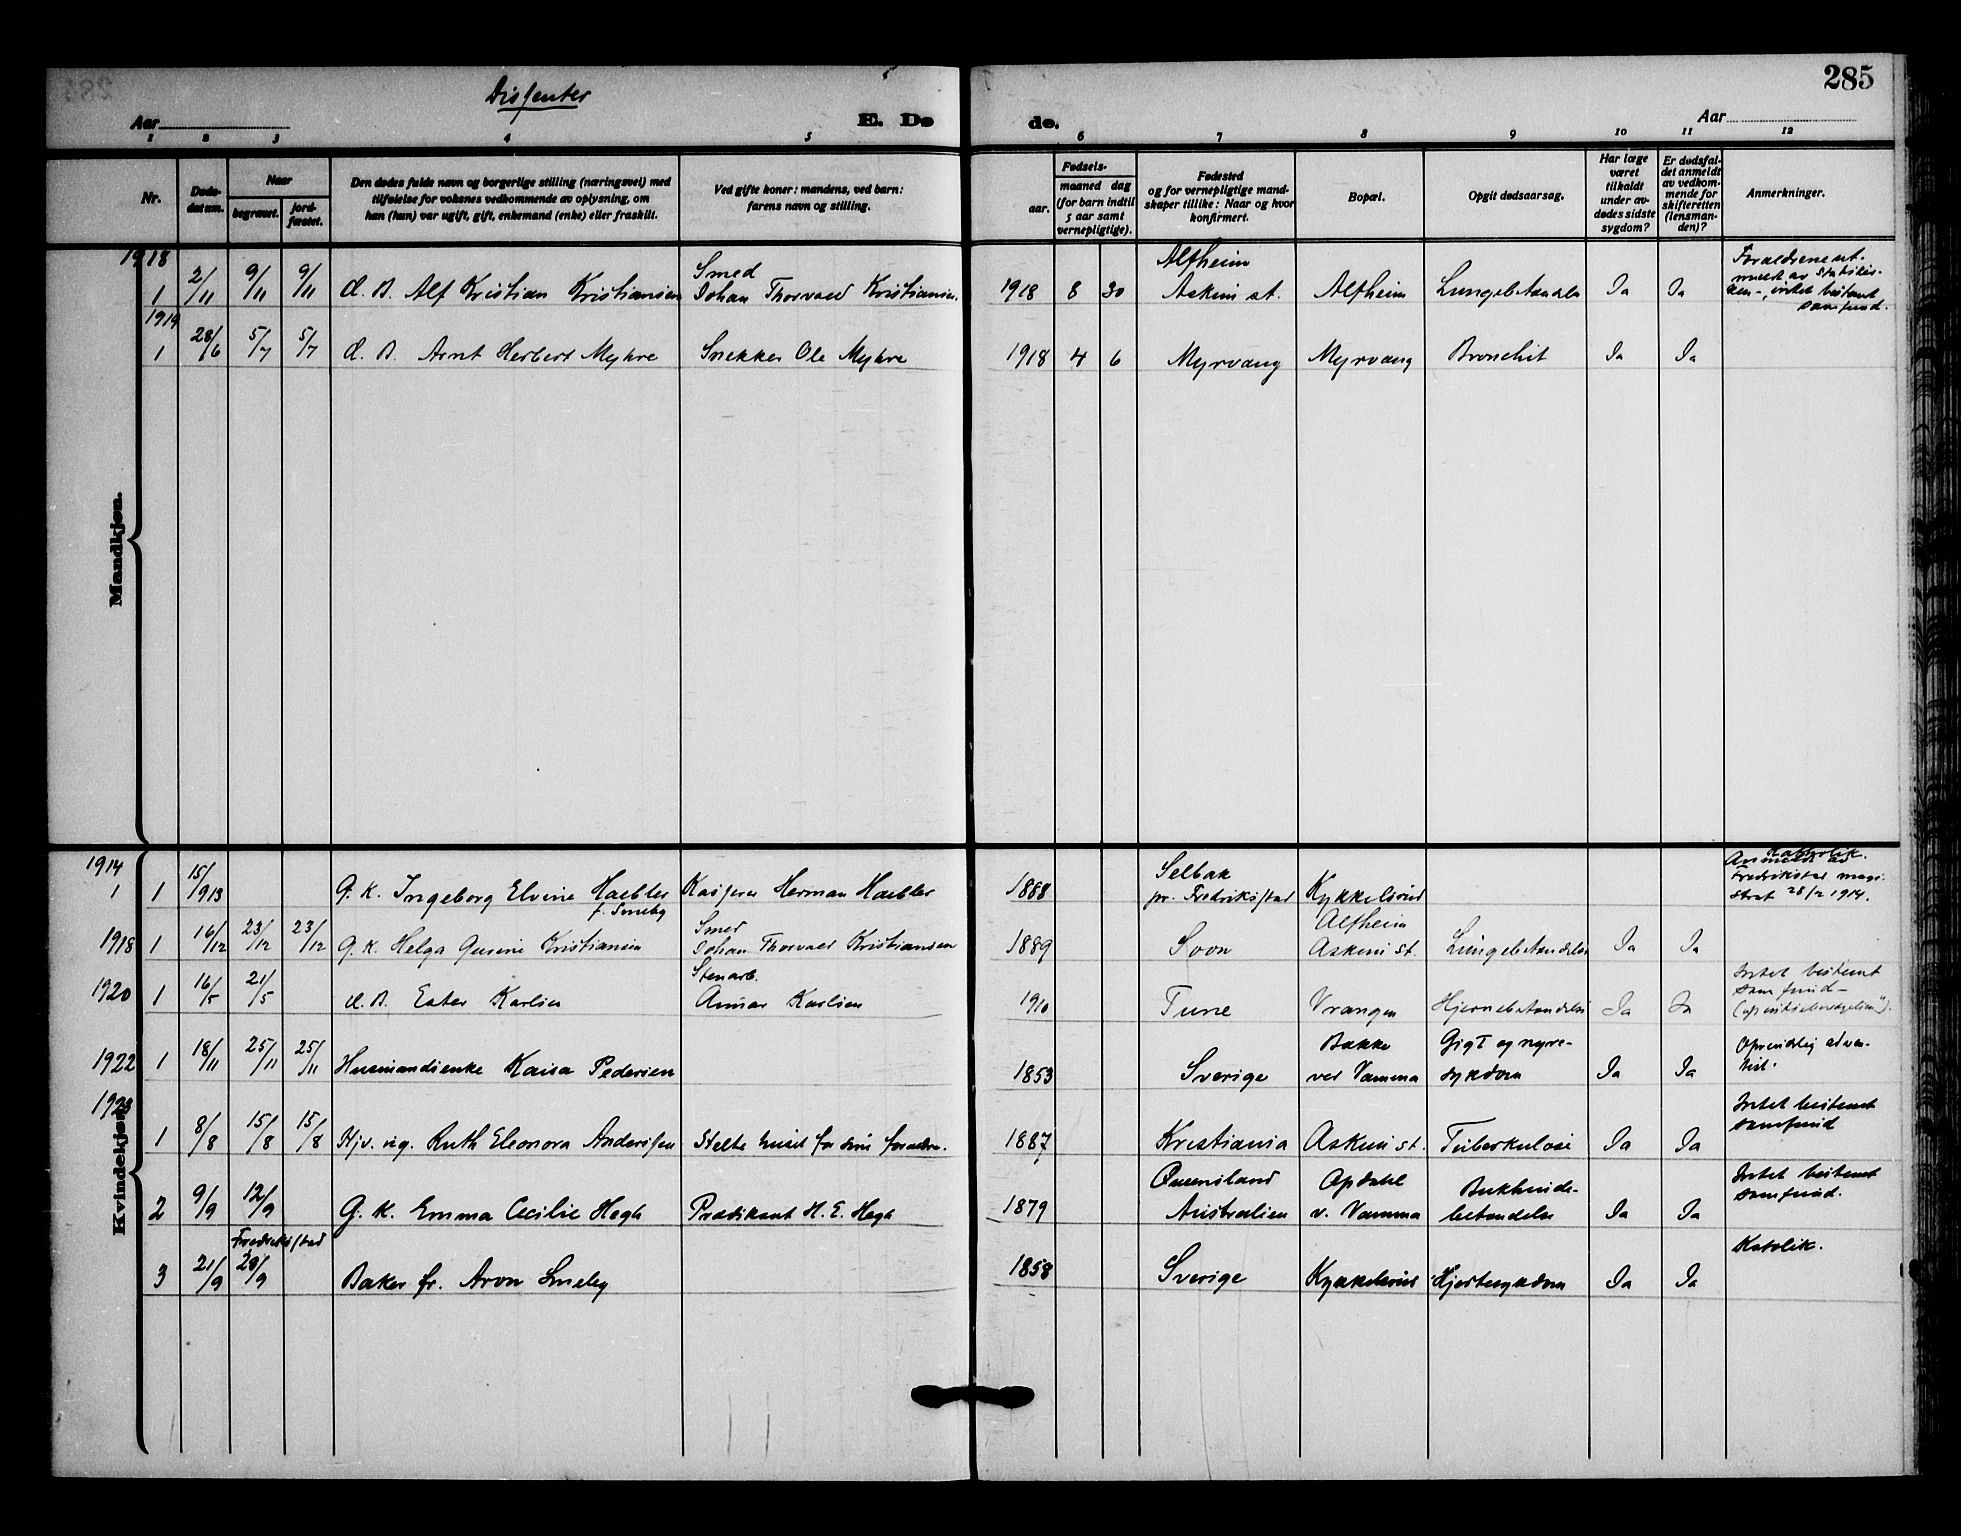 285
Dissenter
Aar
E. Dø
de.
Aar
1 2 3 4 5 6 7 8 9 10 11 12
Nr.
Døds-
datum.
Naar
begravet.
jord-
fæstet.
Den dødes fulde navn og borgerlige stilling (næringsvei) med
tilføielse for voksnes vedkommende av oplysning, om
han (hun) var ugift, gift, enkemand (enke) eller fraskilt.
Ved gifte koner: mandens, ved barn:
farens navn og stilling.
Fødsels-
aar.
maaned dag
(for barn indtil
5 aar samt
vernepligtige).
Fødested
og for vernepligtige mand-
skaper tillike: Naar og hvor
konfirmert.
Bopæl.
Opgit dødsaarsag.
Har læge
været
tilkaldt
under av-
dødes sidste
sygdom?
Er dødsfal-
det anmeldt
av vedkom-
mende for
skifteretten
(lensman-
den)?
Anmerkninger.
Mandkjøn.
1918
1 2/11 9/11 9/11 d. B. Alf Kristian Kristiansen Smed Johan Thorvald Kristiansen. 1918 8 30 Alfheim Askim st. Alfheim Lungebetændelse Ja Ja Forældrene ut-
meldt av statskir-
ken-, intet bestemt
samfund.
1919
1 28/6 5/7 5/7 d. B. Arnt Herbert Myhre Snekker Ole Myhre 1918 4 6 Myrvang Myrvang Bronchit Ja Ja
Kvindekjøn.
1914
1 1 15/1 1913 G. K. Ingeborg Elvine Haebler f. Smeby Kasserer Herman Haebler 1888 Selbak pr. Fredriksstad Kykkelsrud Katholik.
Anmeldt av
Fredrikstad magi-
strat 28/2 1914.
1918 1 16/12 23/12 23/12 G. K. Helga Gusine Kristiansen Smed Johan Thorvald Kristiansen 1889 Soon Alfheim Askim st. Lungebetændelse Ja Ja
1920 1 16/5 21/5 d. B. Ester Karlsen Stenarb. Anmar Karlsen 1910 Tune Vrangen Hjernebetændelse Ja Ja Intet bestemt
samfund-
1922 1 18/11 25/11 25/11 Husmandsenke Kaisa Pedersen 1853 Sverige Bakke ved Vamma Gigt og nyre-
sykdom Ja Ja Oprindelig adven-
tist.
1923
1 8/8 15/8 15/8 Hjv. ug. Ruth Eleonora Anderssen Stelte huset for sine forældre. 1887 Kristiania Askim st. Tuberkulose Ja Ja Intet bestemt
samfund
2 9/9 12/9 G. K. Emma Cecilie Høgh Prædikant H. E. Høgh 1879 Queensland Australien Opdahl v. Vamma Bukhinde-
betændelse Ja Ja Intet bestemt
samfund.
Fredriksstad
3 21/9 28/9 Baker fr. Aron Smeby 1858 Sverige Kykkelsrud Hjertesykdom Ja Ja Katolik.